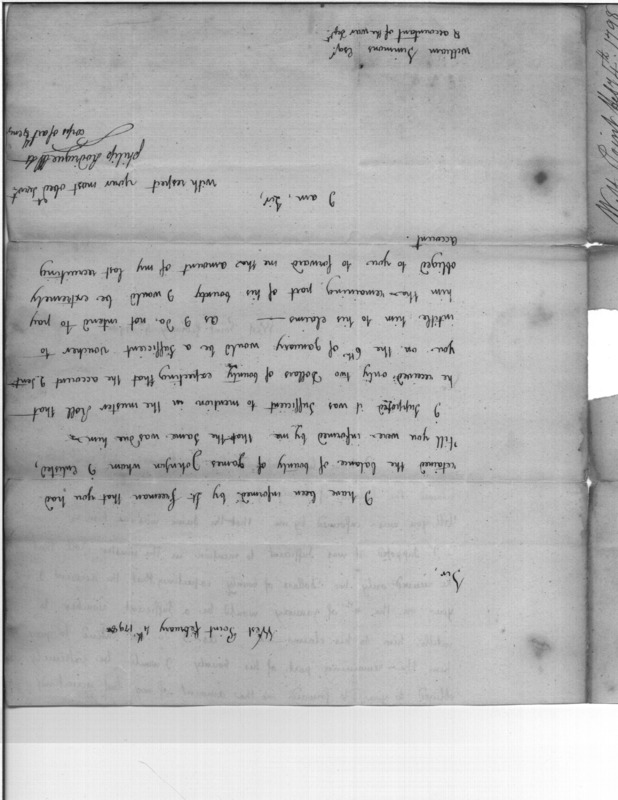 West Point february 4th 1798
Sir,
I have been informed by Lt freeman that you had
retained the balance of bounty of games Johnson whom I enlisted,
'till you were informed by me that the same was due him
I supposed it was sufficient to mention in the muster Roll that
he received only two Dollars of bounty expecting that the account I sent
you on the 6th of january would be a sufficient voucher to
intitle him to his claims — as I do not intend to pay
him the remaining part of his bounty I would be extremely
obliged to you to forward me the amount of my last recruiting
account.
I am, Sir,
with respect your most obed Servt
philip Rodrigue
corps of art &eng
William Simmons Esqr
accountant of the war dept
West Point Feby 4th 1798